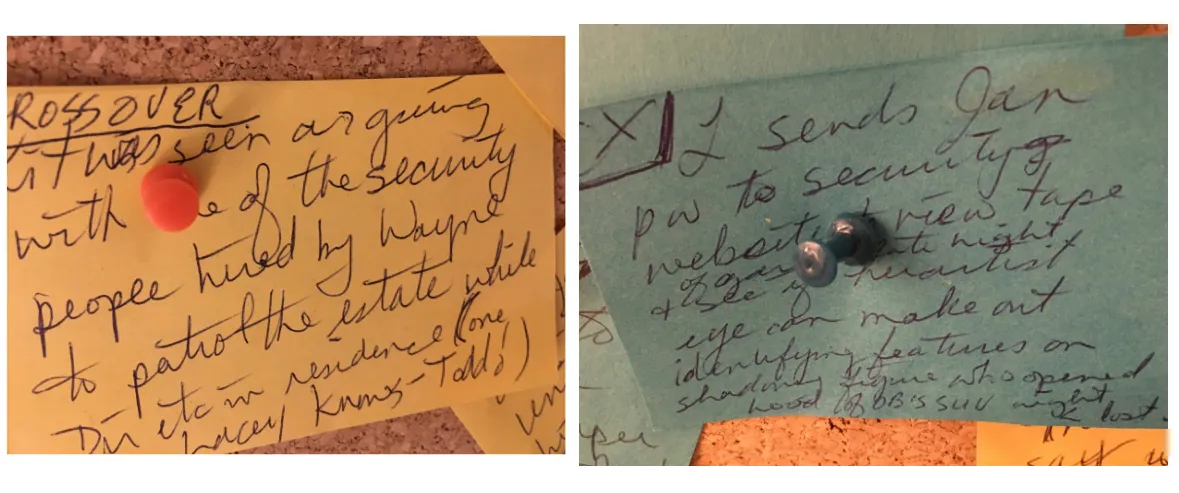 ROSSOVER
it was seen arguing
with of the security
people hired by Wayne
to patrol the estate while
Dir etc in residence (one
Lacey knows - Todd!)
X] L sends Jan
pw to security
website view tape
of gate night
+ see if her artist
eye can make out
identifying features on
shadowy figure who opened
hood of DB's SUV night
lost